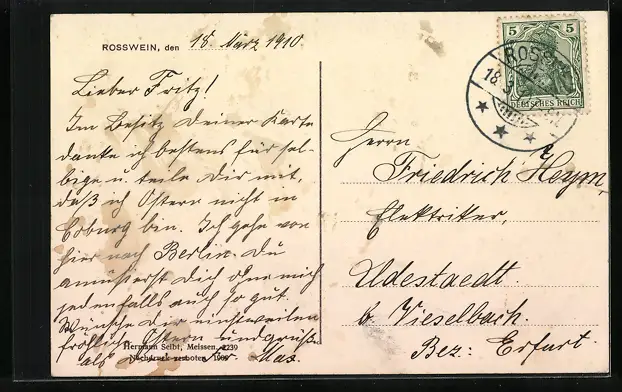 ROSSWEIN, den 18. März 1910
Lieber Fritz!
Im Besitz Deiner Karte
danke ich bestens für sel-
bige u. teile Dir mit,
daß ich Ostern nicht in
Coburg bin. Ich gehe von
hier nach Berlin. Du
amüsierst Dich ohne mich
jedenfalls auch so gut.
Wünsche Dir einstweilen
fröhliche Ostern und grüßt
als Max.
Hermann Seibt, Meissen, 2239
Nachdruck verboten 1909
5 5
DEUTSCHES REICH
ROSS
18.
Herrn
Friedrich Heym,
Elektriker,
Udestaedt.
b. Vieselbach.
Bez: Erfurt.